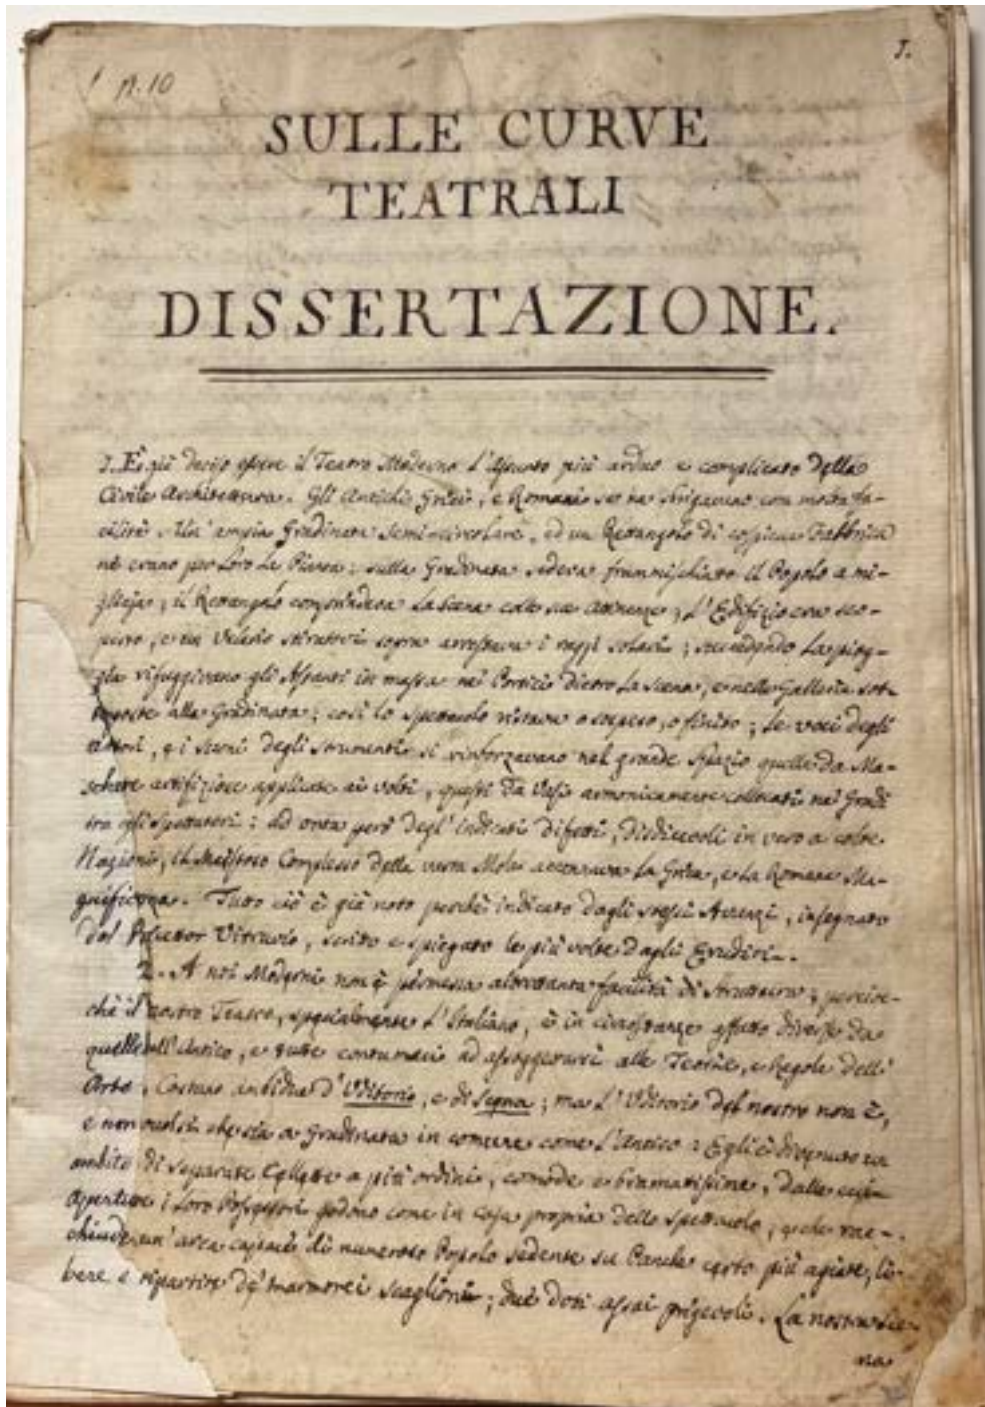 n. 10
I.
SULLE CURVE
TEATRALI
DISSERTAZIONE.
I. È già deciso essere il Teatro Moderno l'assunto più arduo e complicato della
Civile Architettura. Gli Antichi Greci, e Romani se ne con molta fa-
cilità ampia Gradinata Semicircolare, ed un Rettangolo di cospicua Fabbrica
ne erano per loro la Pianta: sulla Gradinata sedeva frammischiato il Popolo a mi-
gliaja; il Rettangolo comprendeva la Scena colle sue attinenze; l'Edifizio era sco-
perto, e un Velario stiratovi sopra arrestava i raggi solari; succedendo la piog-
gia rifuggivano gli Astanti in massa nei Portici dietro la Scena, e nelle Gallerie sot-
toposte alla Gradinata; così lo Spettacolo restava o sospeso, o finito; le voci degli
Attori, e i suoni degli strumenti si rinforzavano nel grande spazio quelle da Ma-
schere artifiziose applicate ai volti, questi da Vasi armonicamente collocati nei Gradi
tra gli Spettatori: ad onta però degl'indicati difetti, disdicevoli in vero a colte
Nazioni, il Maestoso Complesso della vasta Mole la Greca, e la Romana Ma-
gnificenza. Tutto ciò è già noto perchè indicato dagli stessi Avanzi, insegnato
dal Vitruvio, scritto e spiegato le più volte dagli Eruditi.
2. A noi Moderni non è permessa altrettanta facilità di Struttura; percioc-
chè il nostro Teatro, specialmente l'Italiano, è in circostanze affatto diverse da
quelle dell'Antico, e tutte contumaci ad assoggettarsi alle Teorie, e Regole dell'
Arte. Constano ambidue d'Uditorio, e di Scena; ma l'Uditorio del nostro non è,
e non vuolsi che sia a Gradinata in comune come l'Antico: Egli è divenuto un
ambito di separate Cellette a più ordini, comode e bramatissime, dalle cui
Aperture i loro Possessori godono come in casa propria dello Spettacolo; e che rac-
chiude un'area capace di numeroso Popolo sedente su Panche certo più agiate, li-
bere e ripartite de' marmorei Scaglioni; due doti assai pregevoli. La nostra Sce-
na